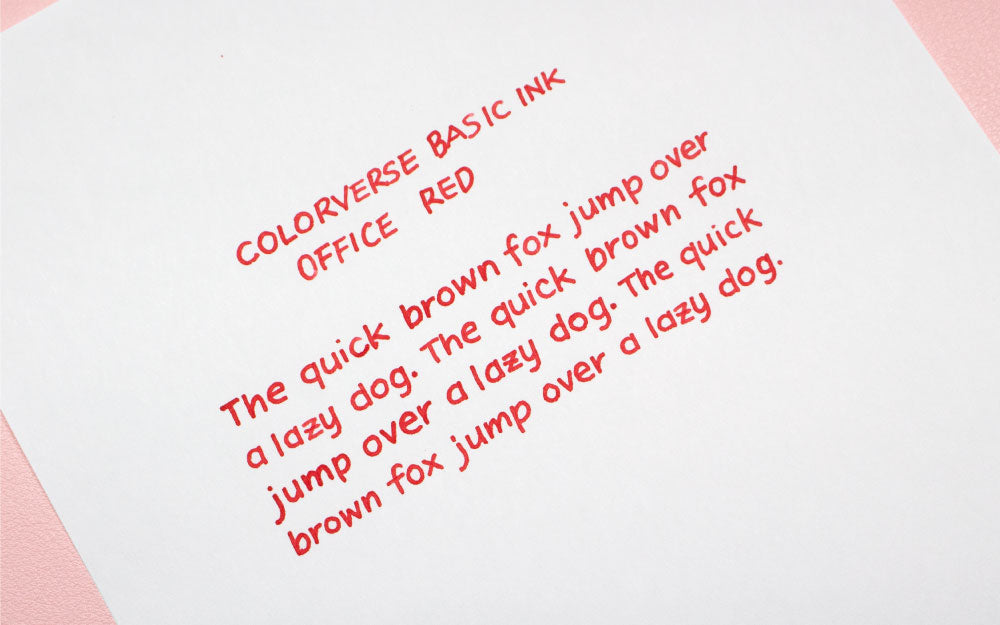 COLORVERSE BASIC INK
OFFICE RED
The quick brown fox jump over
a lazy dog. The quick brown fox
jump over a lazy dog. The quick
brown fox jump over a lazy dog.